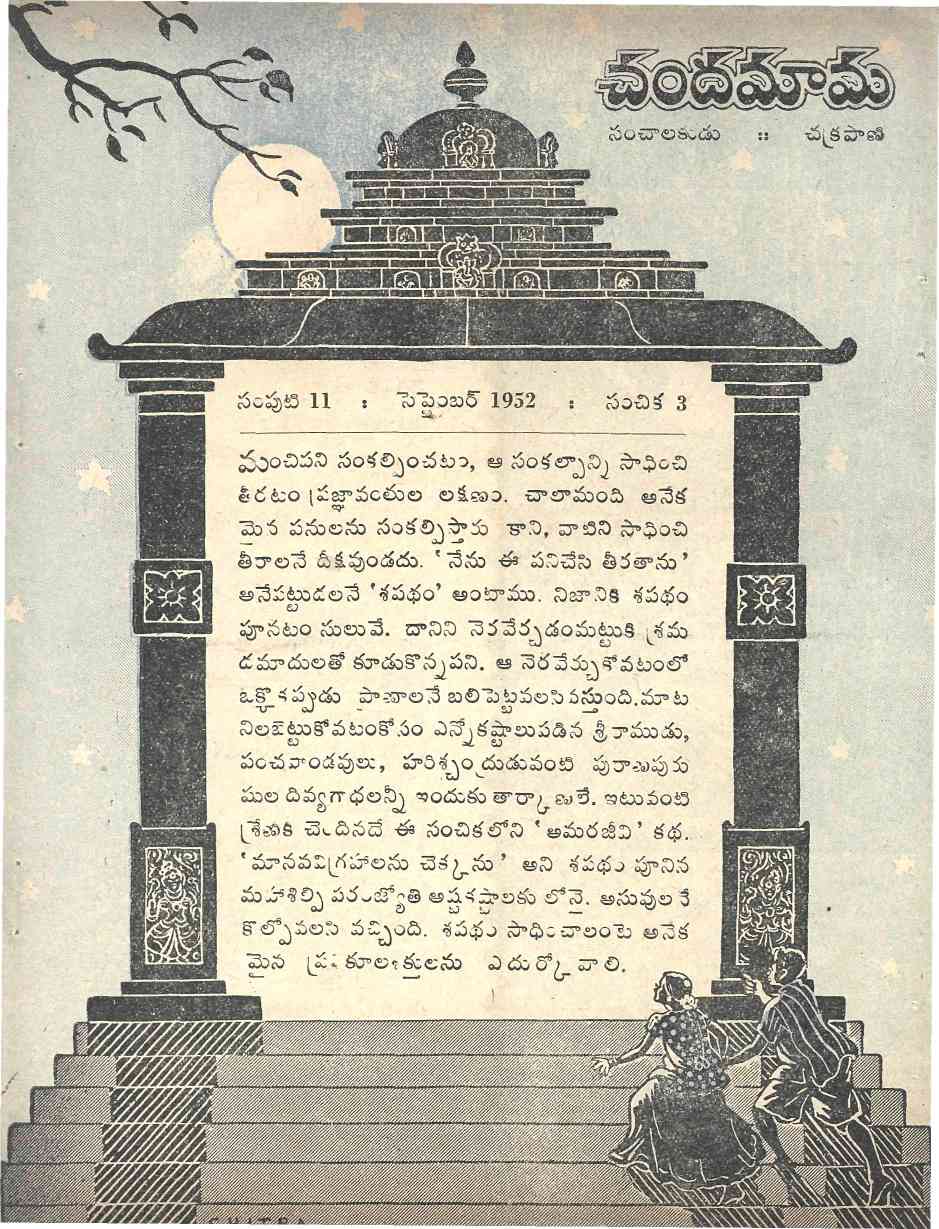 చందమామ
సంచాలకుడు :: చక్రపాణి
సంపుటి 11 : సెప్టెంబర్ 1952 : సంచిక 3
మంచిపని సంకల్పించటం, ఆ సంకల్పాన్ని సాధించి
తీరటం ప్రజ్ఞావంతుల లక్షణం. చాలామంది అనేక
మైన పనులను సంకల్పిస్తారు కాని, వాటిని సాధించి
తీరాలనే దీక్షవుండదు. ‘నేను ఈ పనిచేసి తీరతాను’
అనేపట్టుదలనే ‘శపథం’ అంటాము. నిజానికి శపథం
పూనటం సులువే. దానిని నెరవేర్చడంమట్టుకి శ్రమ
దమాదులతో కూడుకొన్నపని. ఆ నెరవేర్చుకోవటంలో
ఒక్కొకప్పుడు ప్రాణాలనే బలిపెట్టవలసివస్తుంది. మాట
నిలబెట్టుకోవటంకోసం ఎన్నోకష్టాలుపడిన శ్రీరాముడు,
పంచపాండవులు, హరిశ్చంద్రుడువంటి పురాణపురు
షుల దివ్యగాధలన్నీ ఇందుకు తార్కాణలే. ఇటువంటి
శ్రేణికి చెందినదే ఈ సంచికలోని ‘అమరజీవి’ కథ.
‘మానవవిగ్రహాలను చెక్కను’ అని శపథం పూనిన
మహాశిల్పి పరంజ్యోతి అష్టకష్టాలకు లోనై. అసువులనే
కోల్పోవలసి వచ్చింది. శపథం సాధించాలంటె అనేక
మైన ప్రతికూలశక్తులను ఎదుర్కోవాలి.
CHITRA